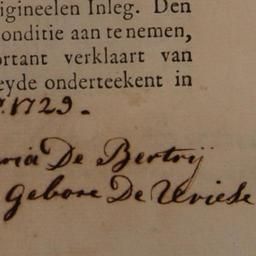 igineelen Inleg. Den
onditie aan te nemen,
ortant verklaart van
eyde onderteekent in
1729.
ria De Bertrij
gebore De Vriese